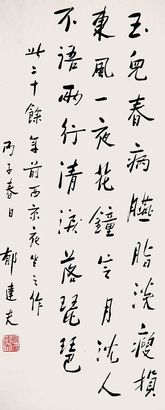 玉兒春病臙脂淡瘦損
東風一夜花鐘定月沈人
不語兩行清淚落琵琶
此二十餘年前西京夜坐之作
丙子春日 郁達夫